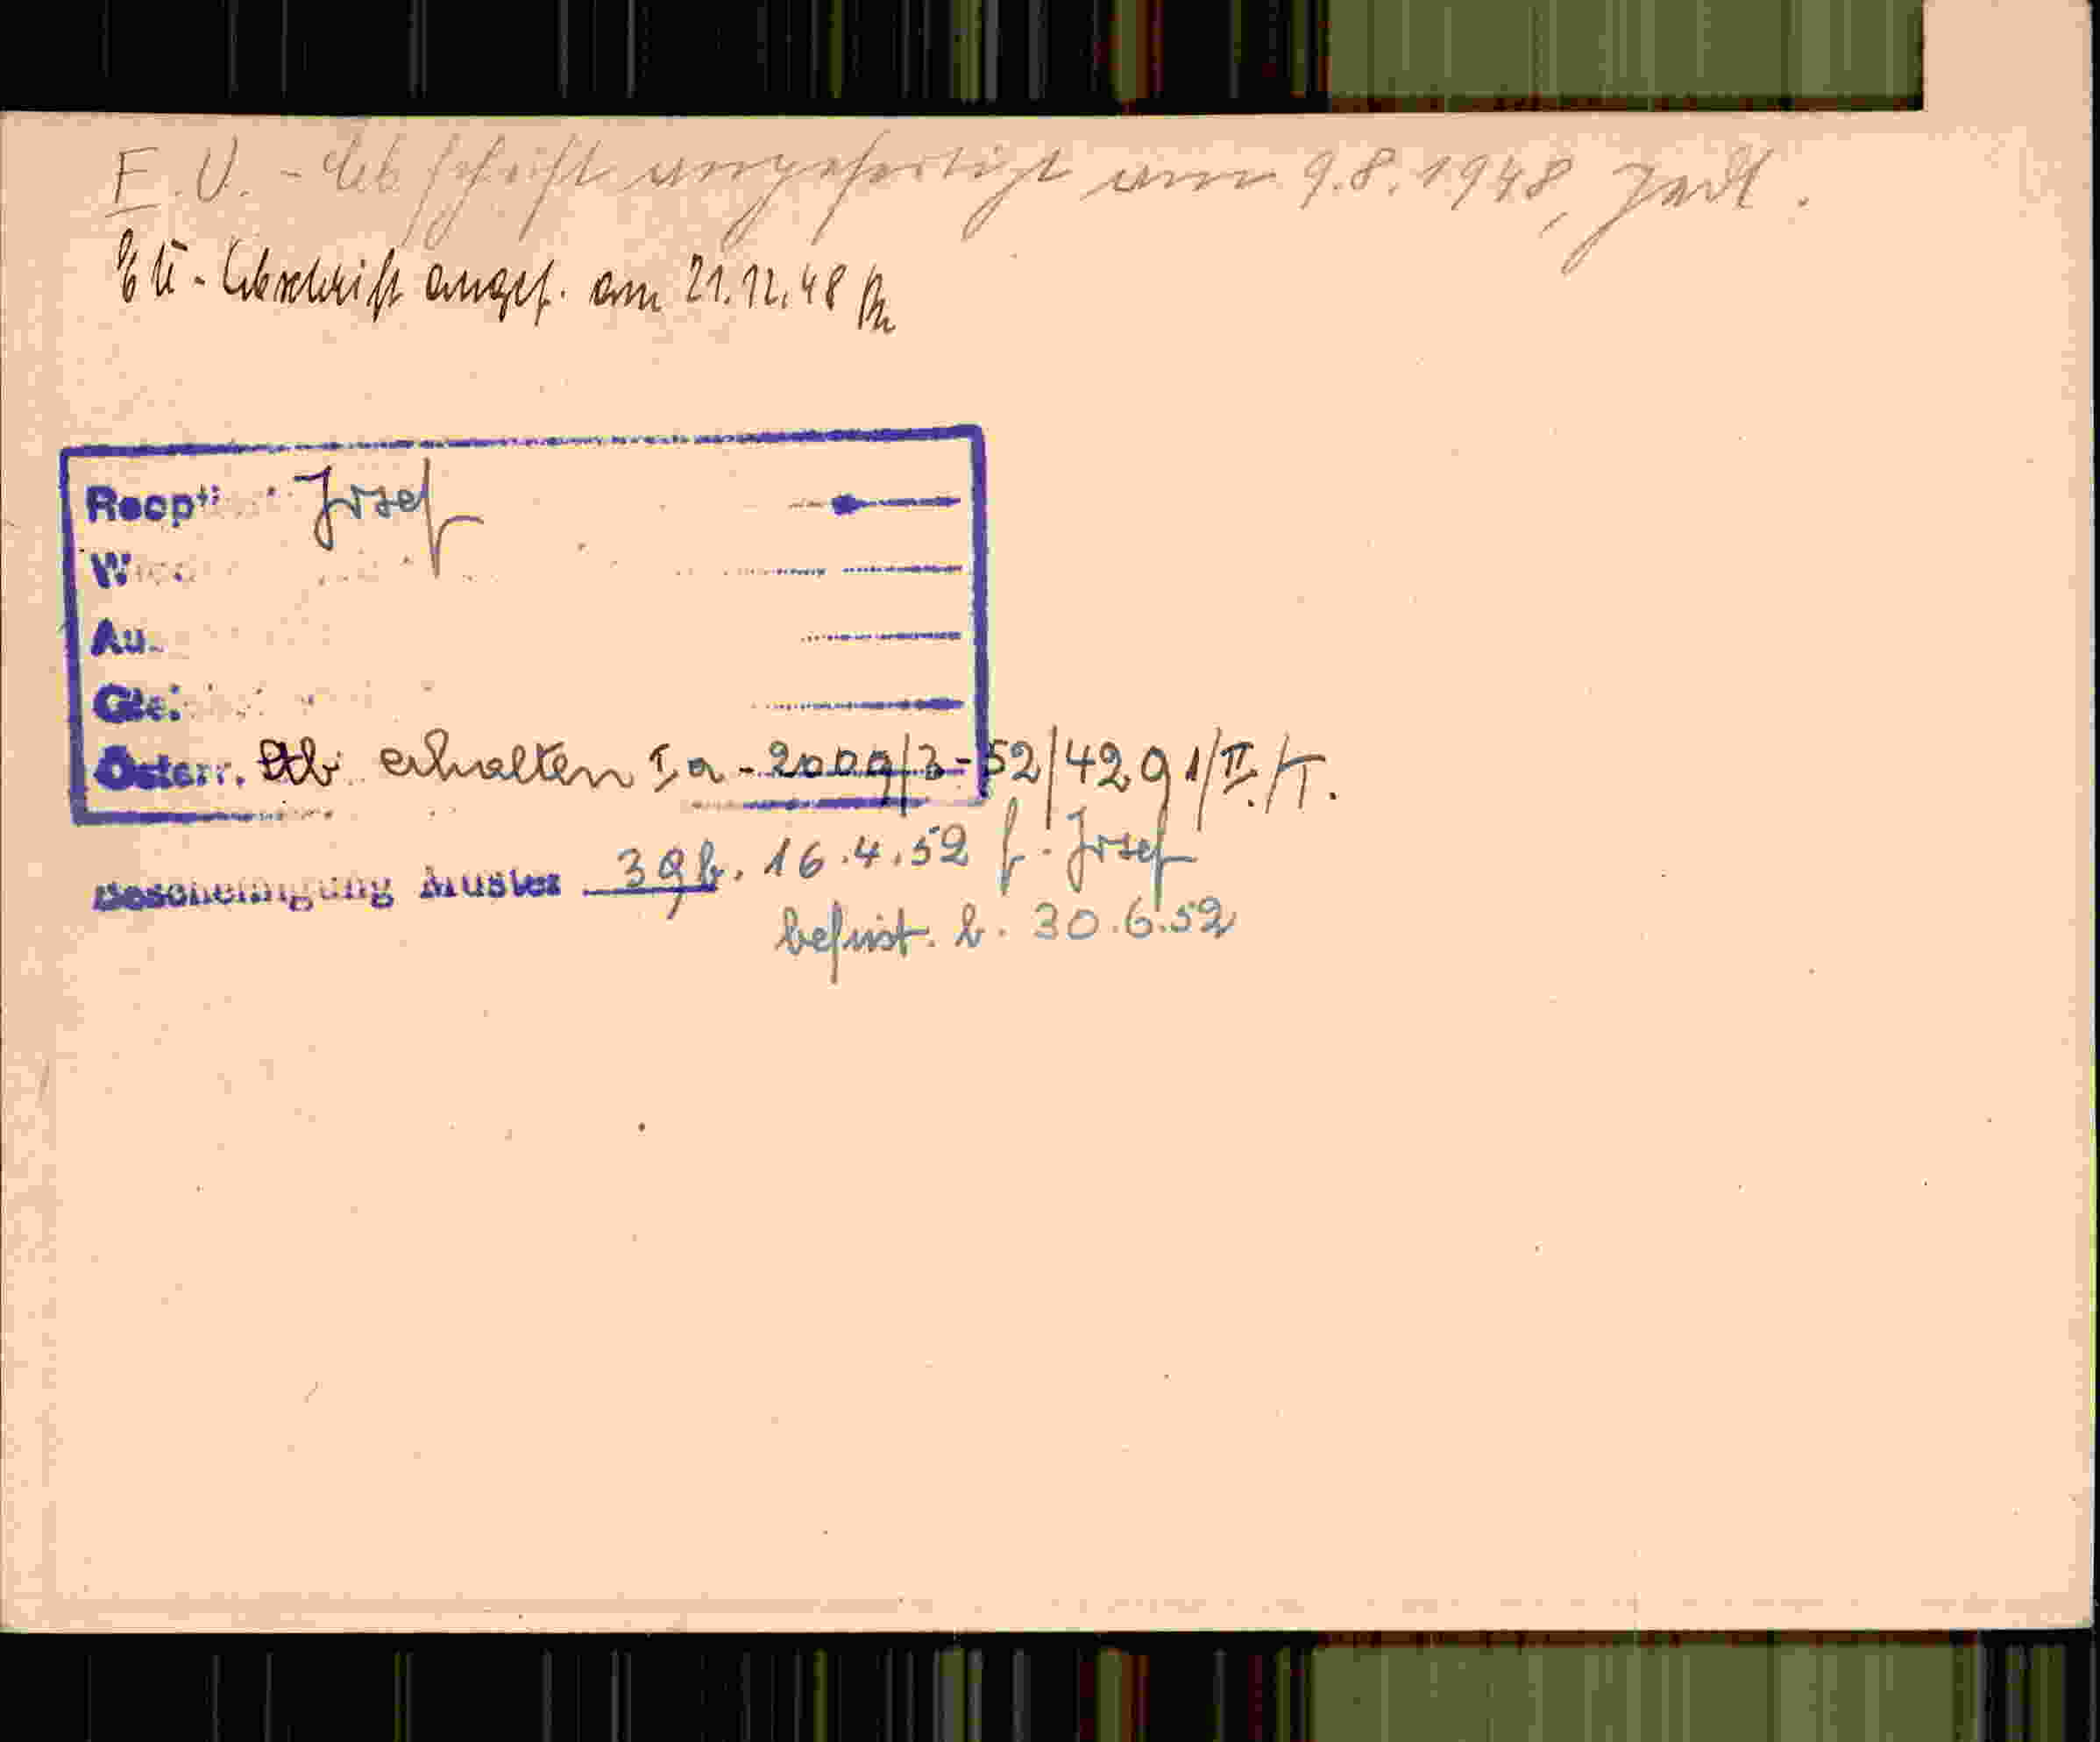 E.U. - Abschrift angefertigt am 9.8.1948,
EU - Abschrift angef. am 21.12.48
Josef
W
Au.
Österr. Stb. erhalten I a - 2009/3-52/4291/II./T.
Bescheinigung Muster 39b. 16.4.52 f. Josef
befrist. b. 30.6.52